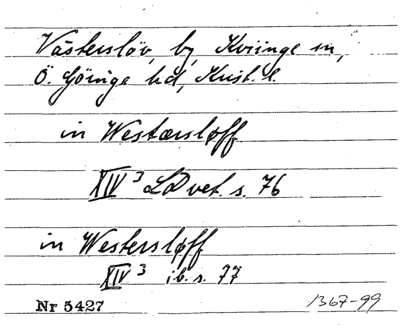 Västerslöv, by, Kviinge sn,
Ö. Göinge hd, Krist. l.
in Westærsløff
XIV 3 LD vet. s. 76
in Westersløff
XIV 3 ib. s. 77
Nr 5427 1367-99